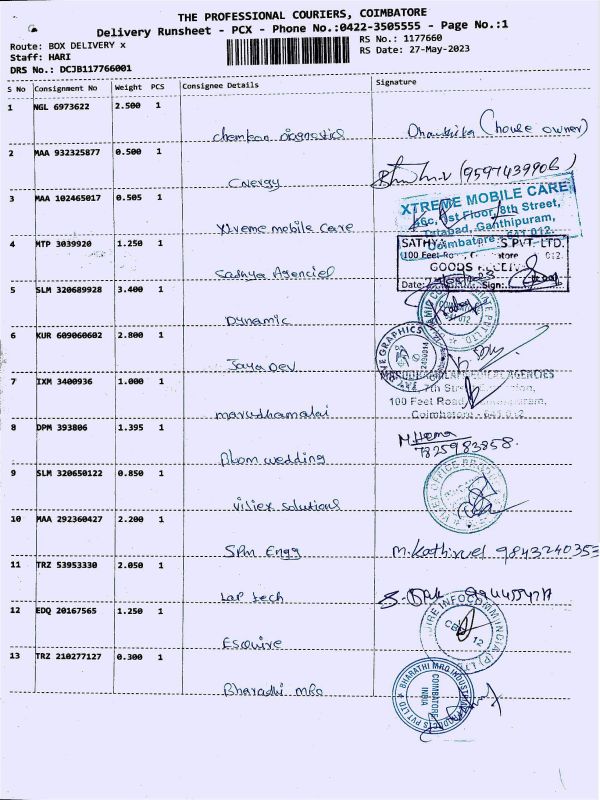 THE PROFESSIONAL COURIERS, COIMBATORE
Delivery Runsheet - PCX - Phone No.:0422-3505555 - Page No.:1
Route: BOX DELIVERY x
RS No.: 1177660
Staff: HARI
RS Date: 27-May-2023
DRS No.: DCJB117766001
S No Consignment No Weight PCS Consignee Details Signature
1 NGL 6973622 2.500 1
Chemban Diagnostics (house owner)
2 MAA 932325877 0.500 1
Cnergy (9597439906)
3 MAA 102465017 0.505 1
Xtreme mobile Care
XTREME MOBILE CARE
1st Floor, 8th Street,
Tatabad, Ganthipuram,
Coimbatore 012.
4 MTP 3039920 1.250 1
Sathya Agencies
SATHYA S PVT. LTD.
100 Feet 012
GOODS
Date: Sign:
5 SLM 320689928 3.400 1
Dynamic
6 KUR 609060602 2.800 1
Jaya Dev
GRAPHICS
7 IXM 3400936 1.000 1
marudhamalai
AGENCIES
7th
100 Feet Road
Coimbatore - 641 012
8 DPM 393806 1.395 1
Bhom wedding
M.Hema
7825983858.
9 SLM 320650122 0.850 1
viliex solutions
10 MAA 292360427 2.200 1
SPM Engg M.Kathirvel 9843240353
11 TRZ 53953330 2.050 1
Lap tech
12 EDQ 20167565 1.250 1
Esquire
INFOCOMM INDIA (P) LTD
CBE 12
13 TRZ 210277127 0.300 1
Bharadhi MRO
BHARATHI MRO INDUSTRIAL PRODUCTS PVT LTD
COIMBATORE
INDIA